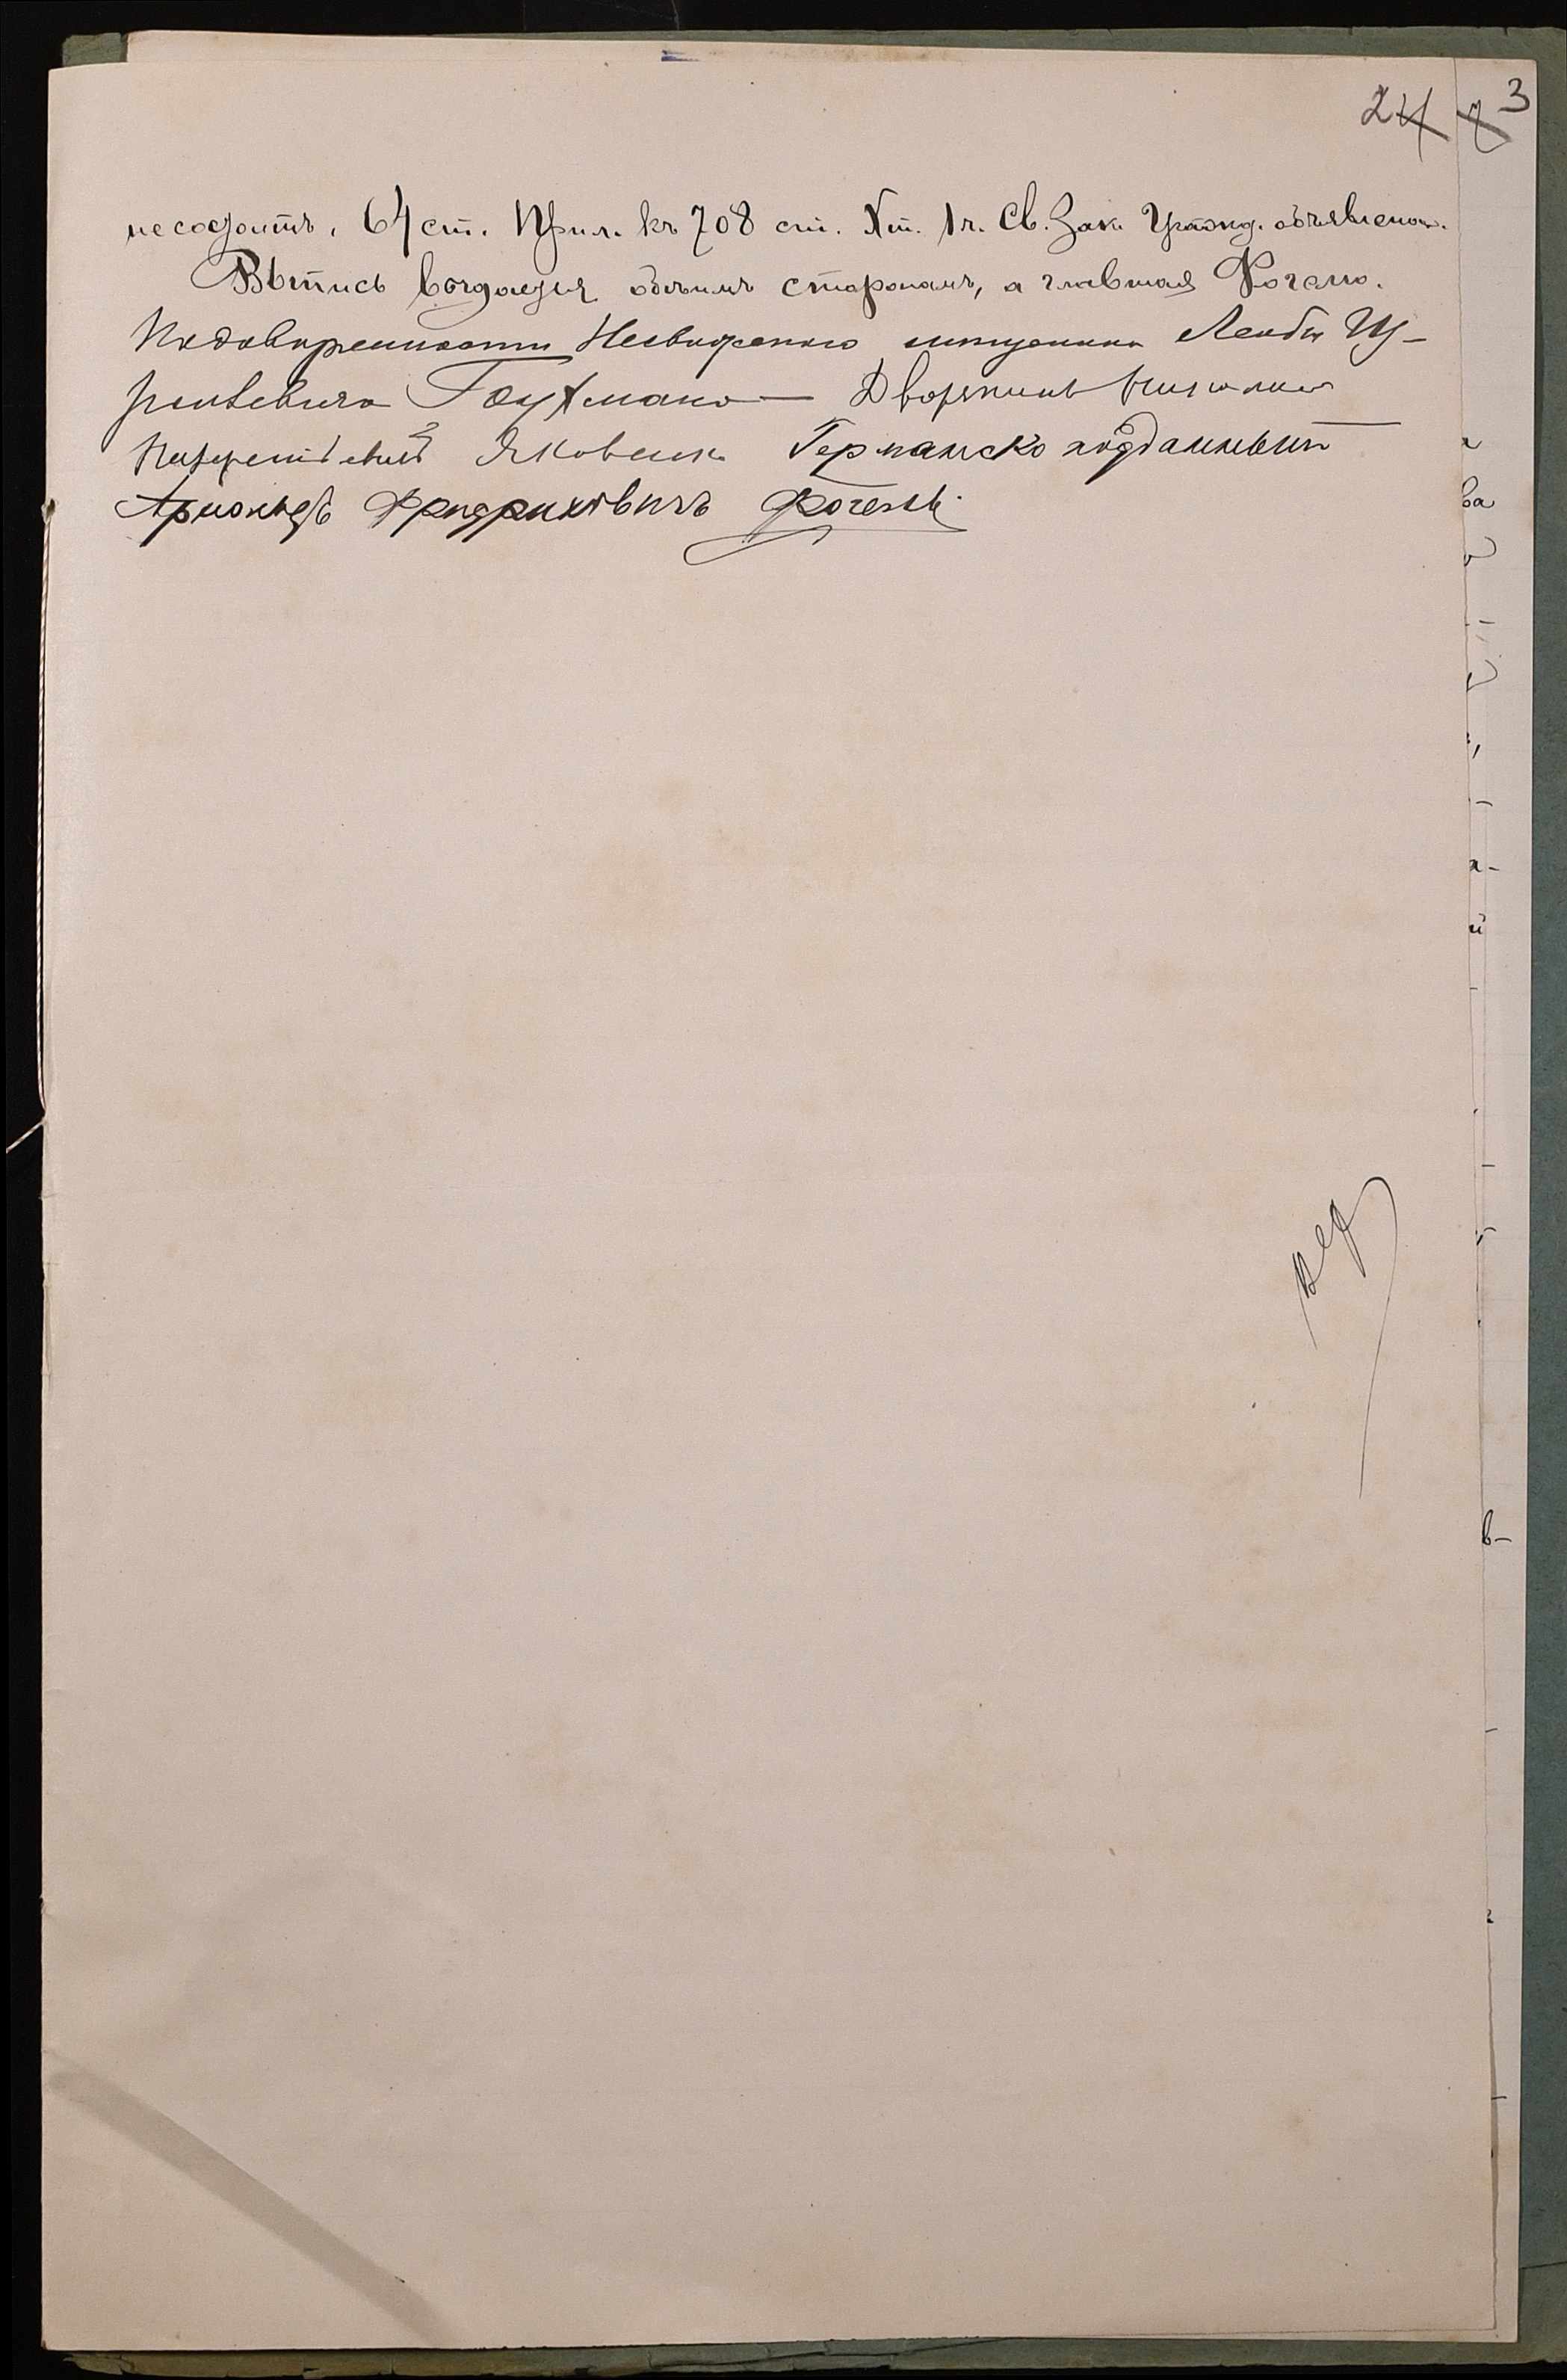 24 7 3
не состоитъ, 64 ст. Прил. къ 708 ст. X т. 1 ч. Св. Зак. Гражд. объявлена.
Выпись выдается обѣимъ сторонамъ, а главная Фогелю.
По довѣренности Несвижскаго мѣщанина Лейбы Из-
раилевича Гоухмана — Дворянинъ
Яковенко Германско подданный
Арнольдъ Фридриховичъ Фогель